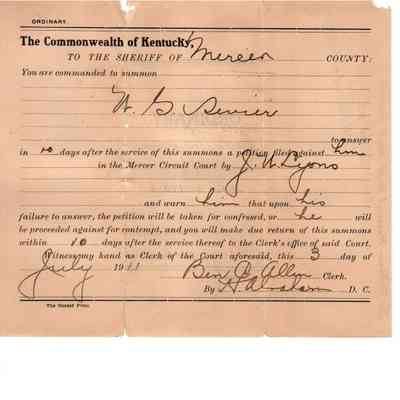 ORDINARY.
The Commonwealth of Kentucky,
TO THE SHERIFF OF Mercer COUNTY:
You are commanded to summon
W. G. Sevier
to answer
in 10 days after the service of this summons a petition filed against him
in the Mercer Circuit Court by J. W. Lyons
and warn him that upon his
failure to answer, the petition will be taken for confessed, or he will
be proceeded against for contempt, and you will make due return of this summons
within 10 days after the service thereof to the Clerk's office of said Court.
Witness my hand as Clerk of the Court aforesaid, this 3 day of
July 1911 Ben C. Allin Clerk.
By H. Abraham D. C.